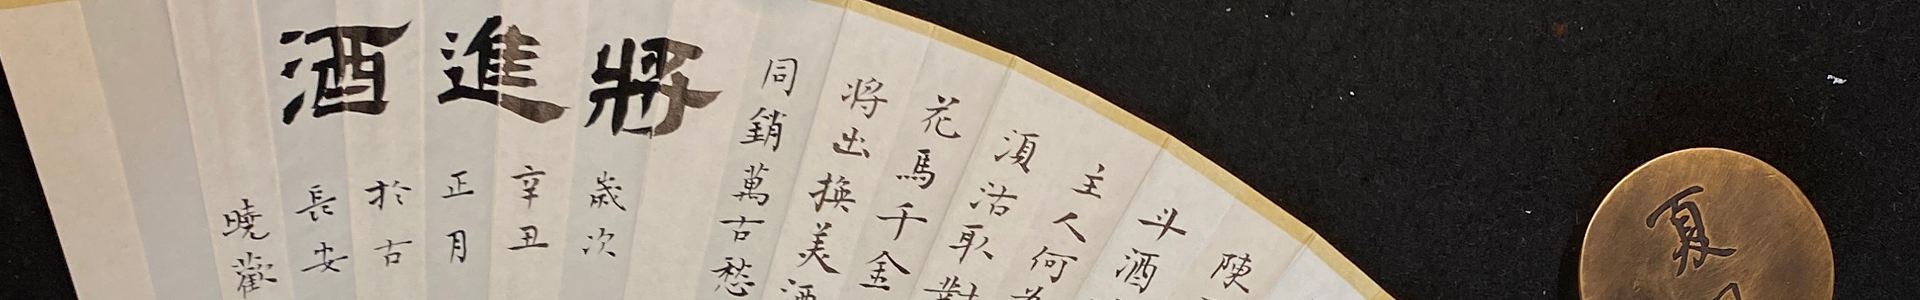 陳
斗酒
主人何為
湏沽取對
花馬千金
将出換美酒
同銷萬古愁
將進酒
歲次
辛丑
正月
於古
長安
曉歡
夏